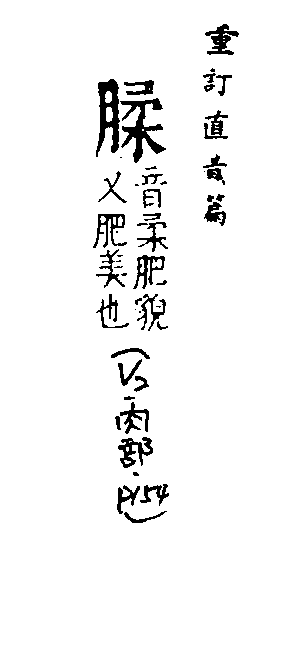 重訂直音篇
腬
音柔肥貌
又肥美也
(V2肉部.P154)